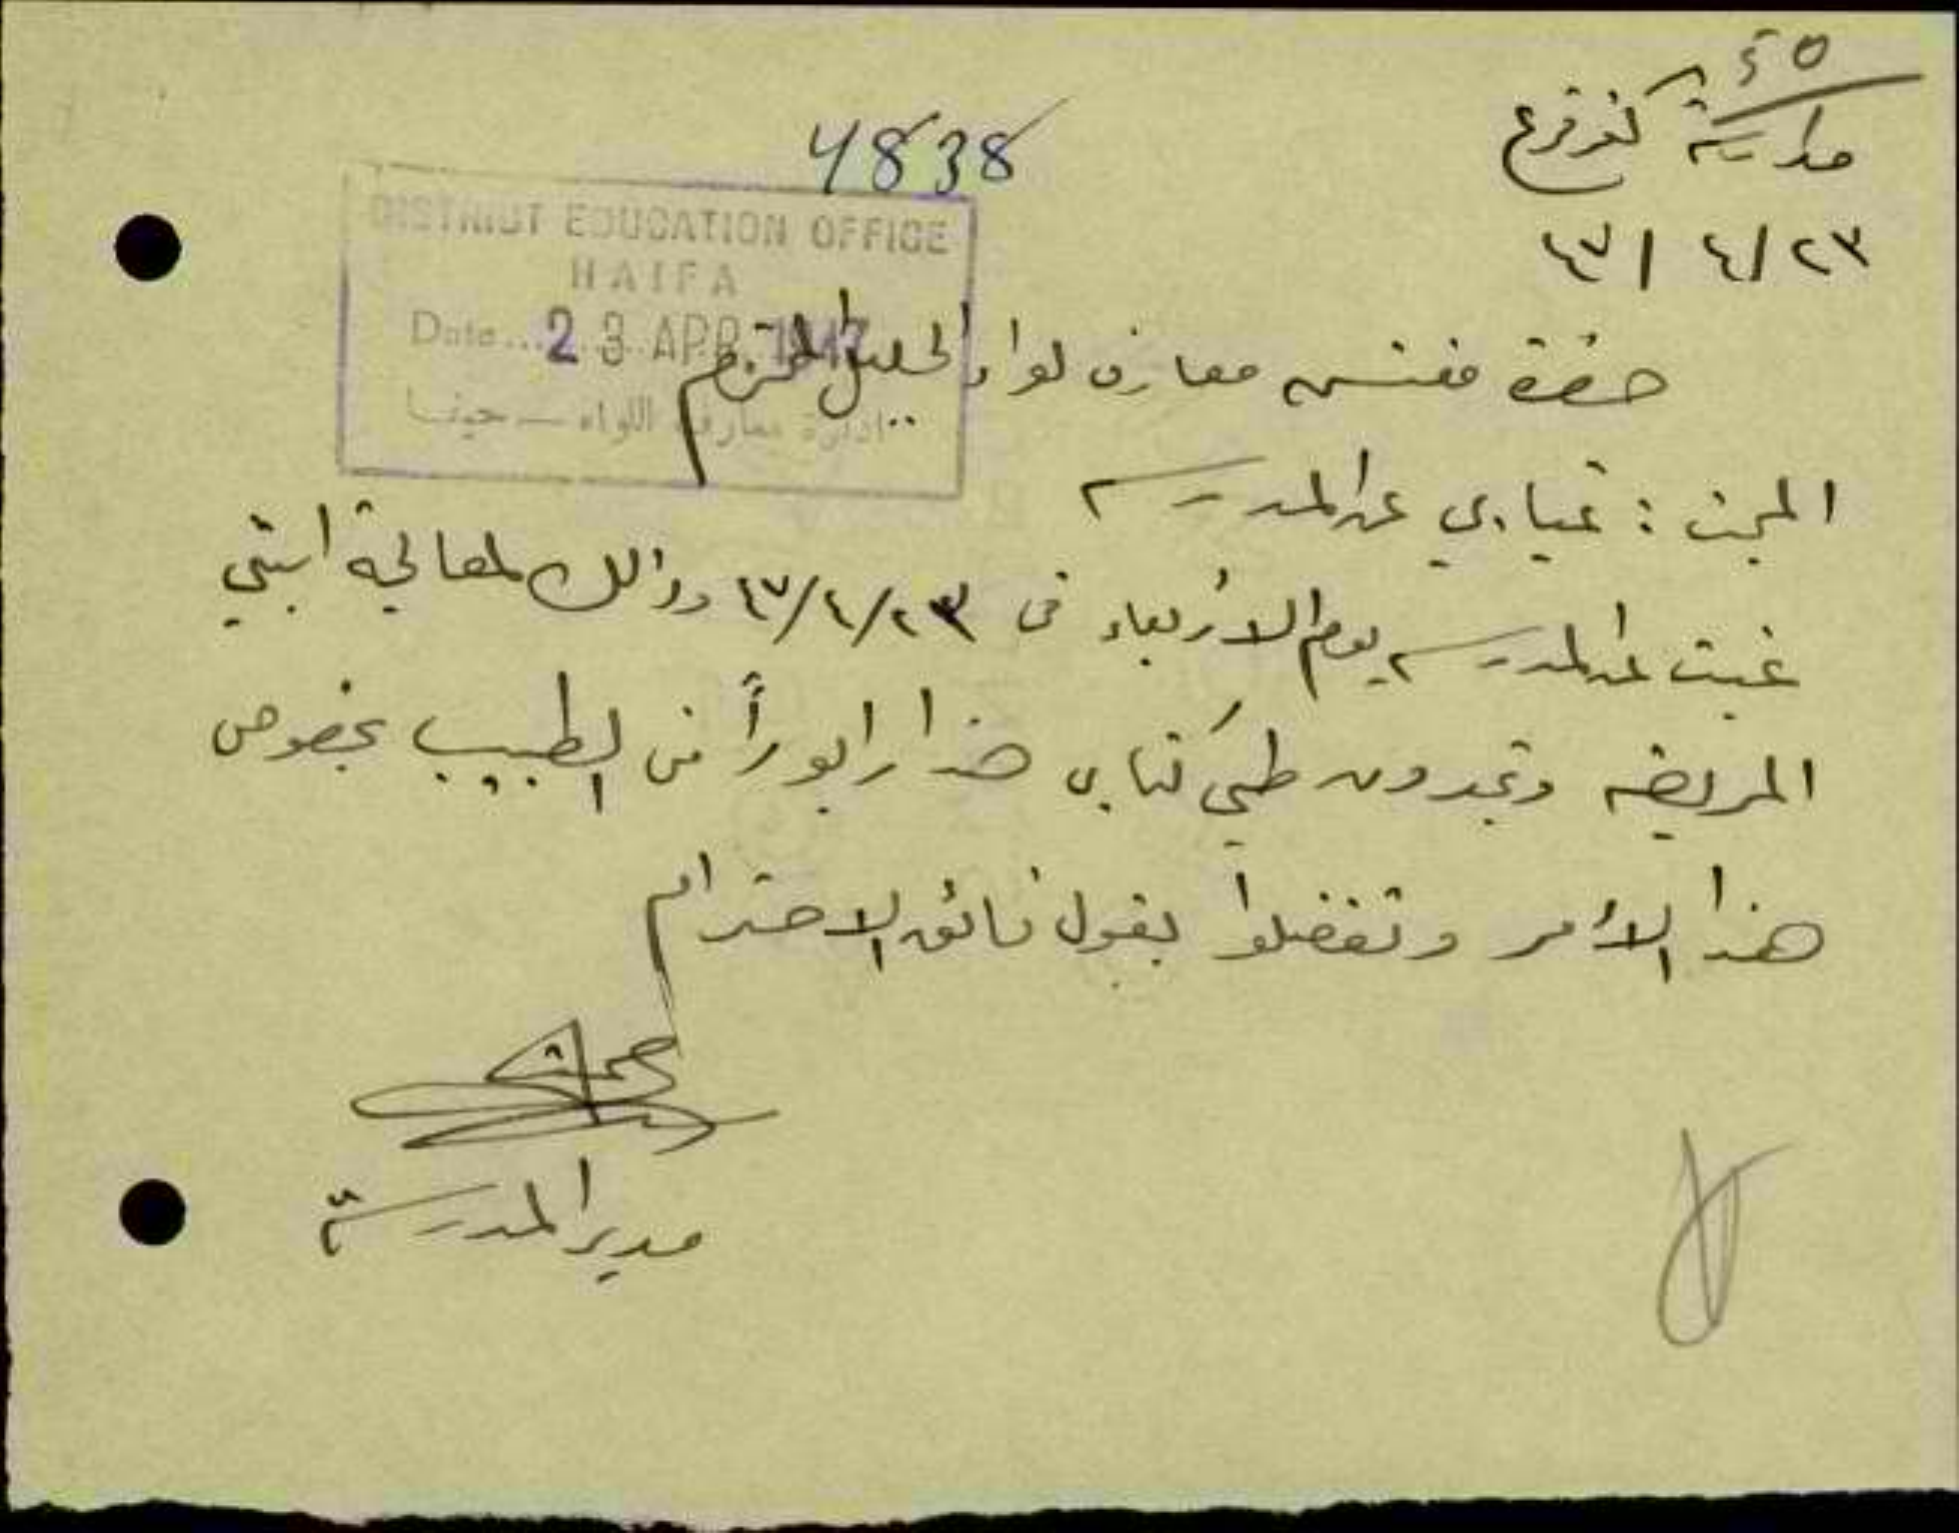 ٤٥
مدرسة كفرقرع
٢٣/ ٤/ ٤٧
4838
DISTRICT EDUCATION OFFICE
HAIFA
Date... 23 APR 1947
ادارة معارف اللواء — حيفا
حضرة مفتش معارف لواء الجليل المحترم
المبحث : غيابي عن المدرسه
غبت عن المدرسه يوم الاربعاء في ٤٧/٤/٢٣ وذالك لمعالجة ابنتي
المريضه وتجدون طي كتابي هذا رابوراً من الطبيب بخصوص
هذا الأمر وتفضلوا بقبول فائق الاحترام
مدير المدرسة